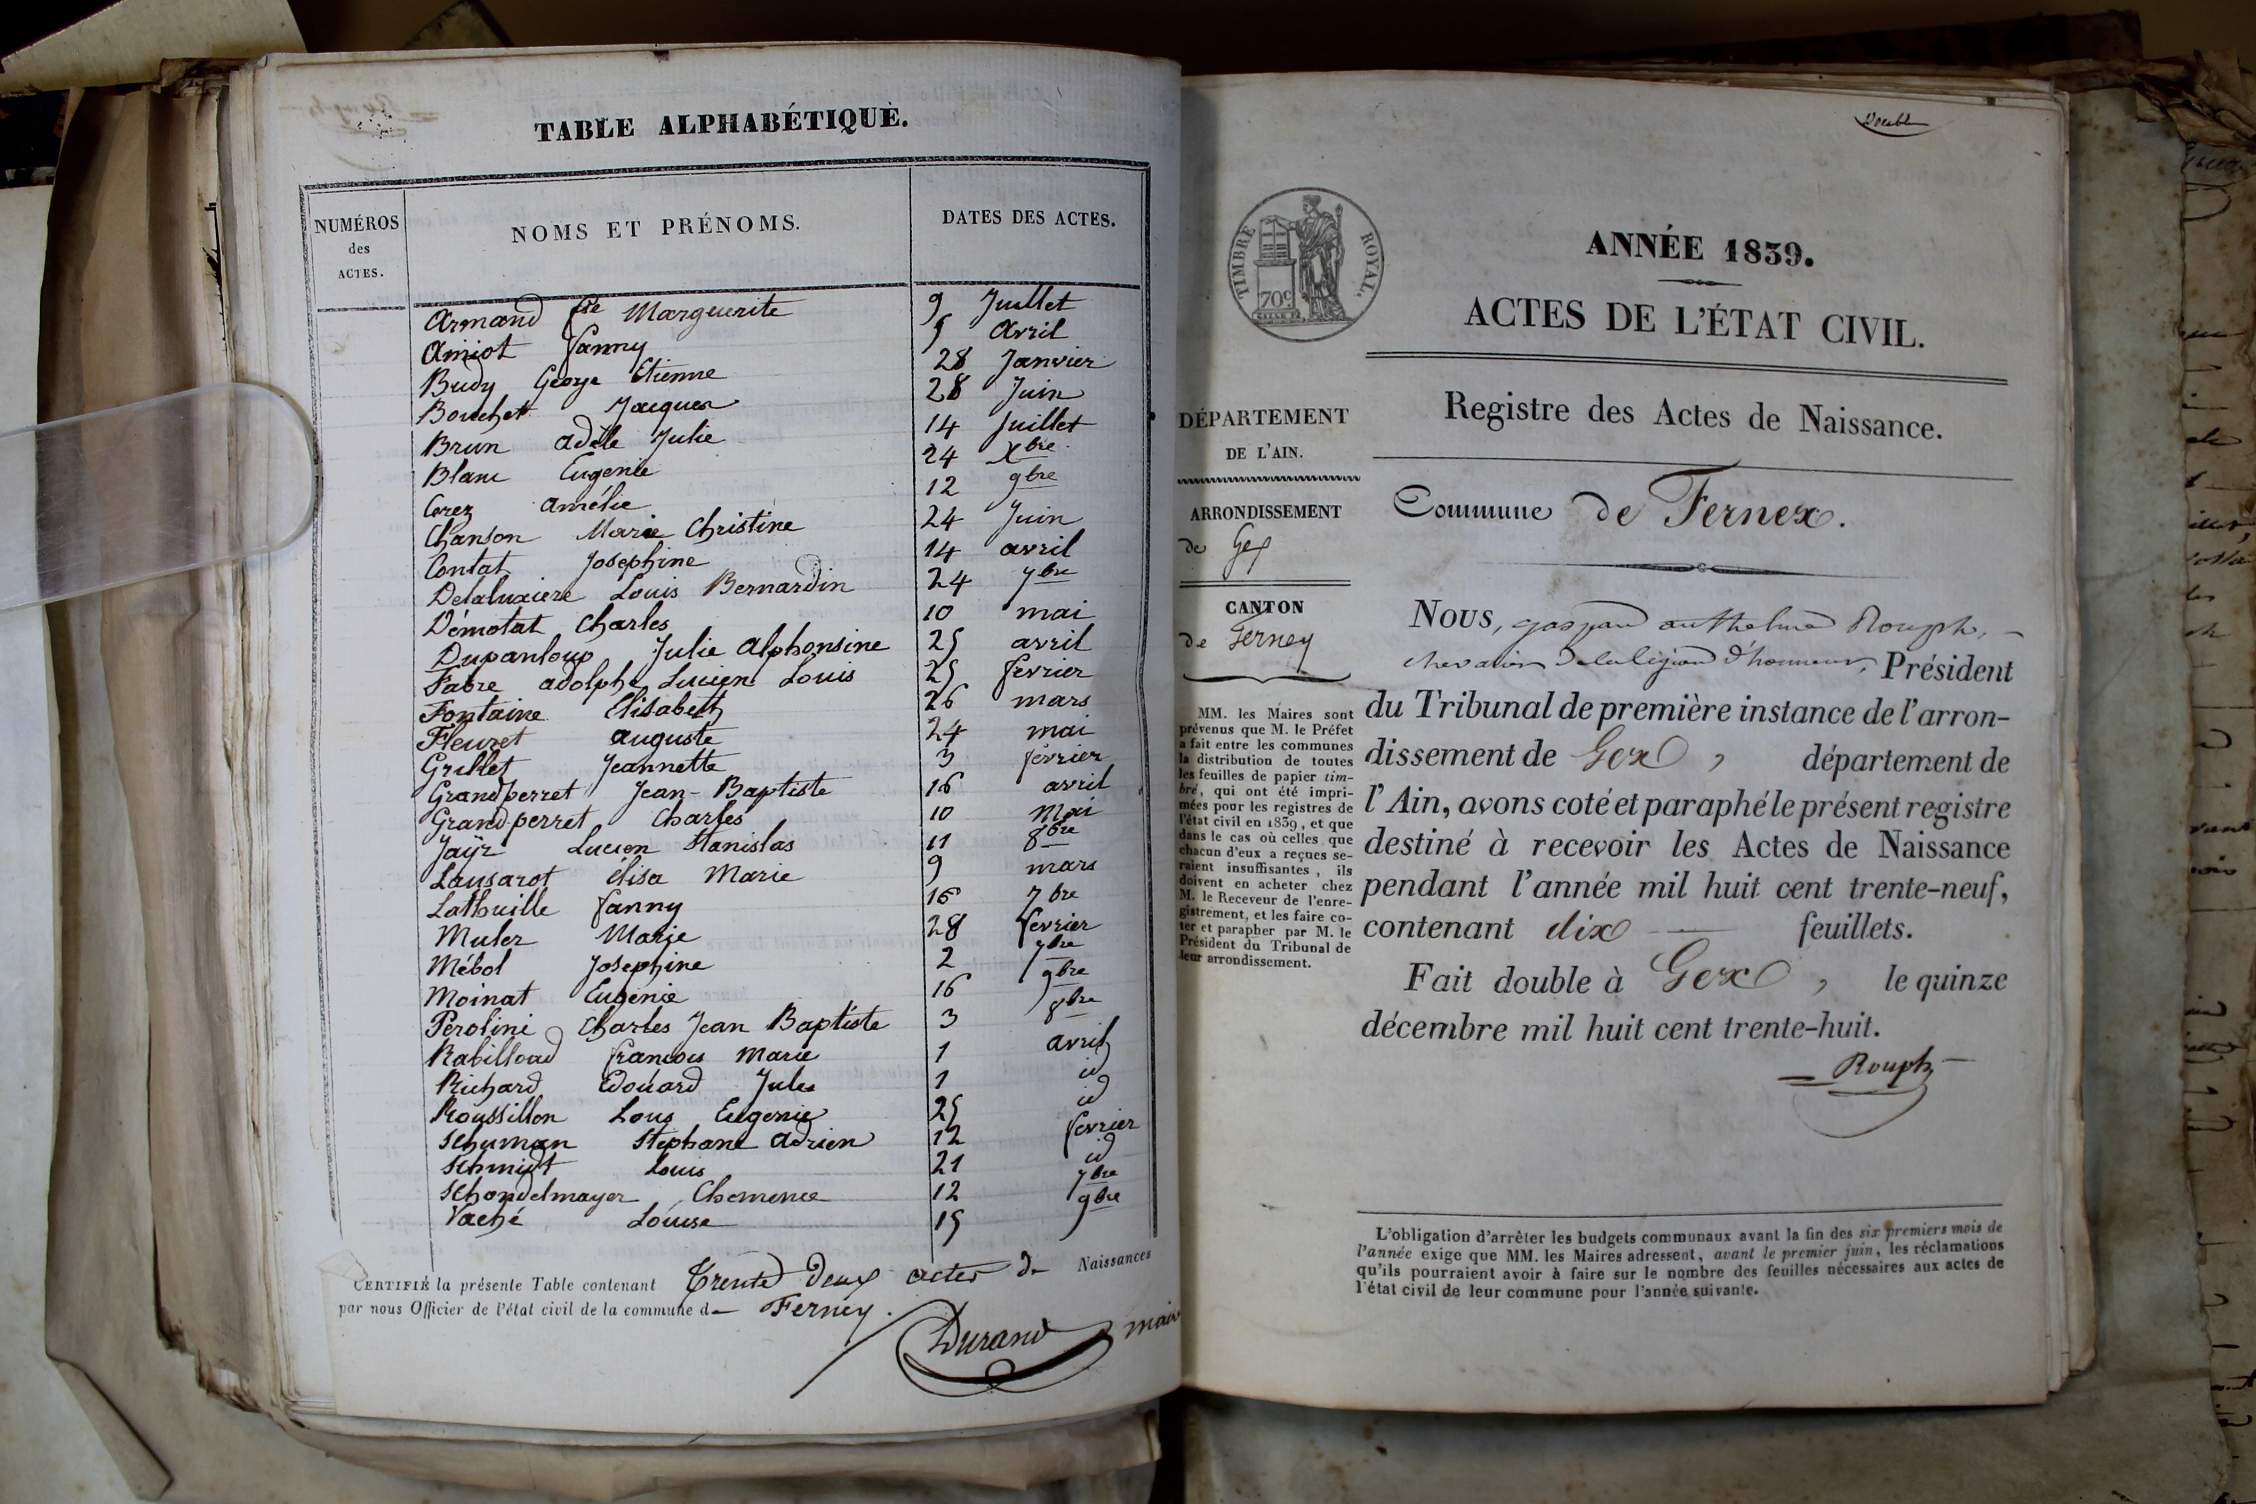 TABLE ALPHABÉTIQUE.
NUMÉROS des ACTES.
NOMS ET PRÉNOMS.
DATES DES ACTES.
Armand fse Marguerite 9 Juillet
Amiot fanny 5 Avril
Budy George Etienne 28 Janvier
Bouchet Jacques 28 Juin
Brun adèle Julie 14 Juillet
Blanc Eugenie 24 Xbre
Cerez amélie 12 9bre
Chanson Marie Christine 24 Juin
Contat Josephine 14 avril
Louis Bernardin 24 7bre
Démotat Charles 10 mai
Dupanloup Julie alphonsine 25 avril
Fabre adolphe Lucien Louis 25 fevrier
Fontaine Elisabeth 26 mars
Fleuret auguste 24 mai
Grillet Jeannette 3 fevrier
Grandperret Jean-Baptiste 16 avril
Grandperret Charles 10 Mai
Jaÿr Lucien Stanislas 11 8bre
Lansarot élisa Marie 9 mars
Lathuille fanny 16 7bre
Muler Marie 28 fevrier
Mébol Josephine 2 7bre
Moinat Eugénie 16 9bre
Perolini Charles Jean Baptiste 3 8bre
Rabilloud francois marie 1 avril
Richard Edouard Jules 1 id
Roussillon Loug Eugenie 25 id
Schuman Stéphane adrien 12 fevrier
Schmidt Louis 21 id
Schondelmayer Chemence 12 7bre
Vaché Louise 15 9bre
CERTIFIÉ la présente Table contenant Trente Deux actes de Naissances
par nous Officier de l'état civil de la commune de Ferney.
Durand maire
Double
TIMBRE ROYAL.
70c
ANNÉE 1839.
ACTES DE L'ÉTAT CIVIL.
Registre des Actes de Naissance.
DÉPARTEMENT
DE L'AIN.
ARRONDISSEMENT
de Gex
CANTON
de Ferney
MM. les Maires sont
prévenus que M. le Préfet
a fait entre les communes
la distribution de toutes
les feuilles de papier tim-
bré, qui ont été impri-
mées pour les registres de
l'état civil en 1839, et que
dans le cas où celles que
chacun d'eux a reçues se-
raient insuffisantes, ils
doivent en acheter chez
M. le Receveur de l'enre-
gistrement, et les faire co-
ter et parapher par M. le
Président du Tribunal de
leur arrondissement.
Commune de Fernex.
Nous, gaspard anthelme Rouph,
chevalier de la légion d'honneur, Président
du Tribunal de première instance de l'arron-
dissement de Gex, département de
l'Ain, avons coté et paraphé le présent registre
destiné à recevoir les Actes de Naissance
pendant l'année mil huit cent trente-neuf,
contenant dix feuillets.
Fait double à Gex, le quinze
décembre mil huit cent trente-huit.
Rouph
L'obligation d'arrêter les budgets communaux avant la fin des six premiers mois de
l'année exige que MM. les Maires adressent, avant le premier juin, les réclamations
qu'ils pourraient avoir à faire sur le nombre des feuilles nécessaires aux actes de
l'état civil de leur commune pour l'année suivante.